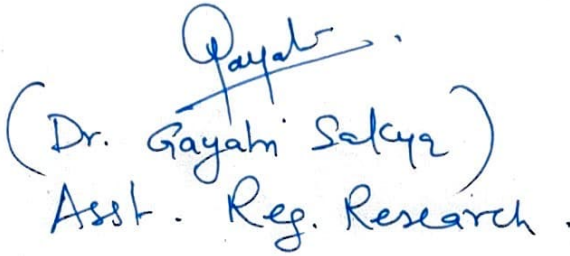 Gayatri
(Dr. Gayatri Sakya)
Asst. Reg. Research.